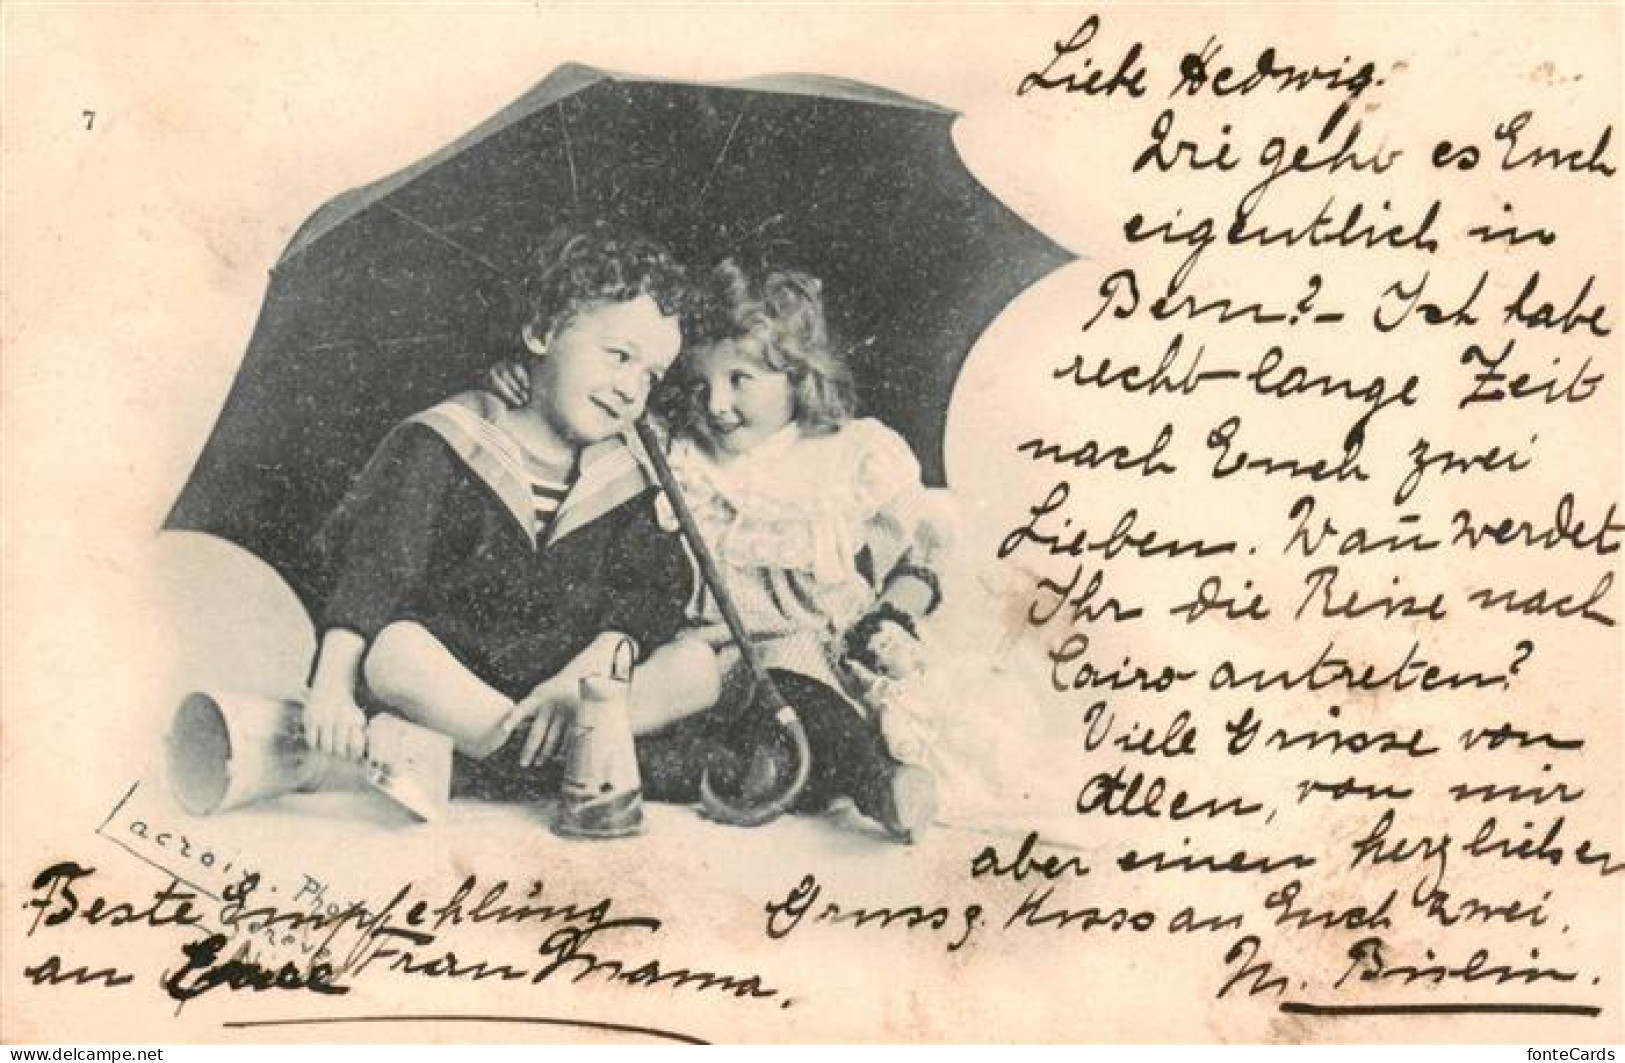 7
Liebe Hedwig.
Wie geht es Euch
eigentlich in
Bern? – Ich habe
recht lange Zeit
nach Euch zwei
Lieben. Wañ werdet
Ihr die Reise nach
Cairo antreten?
Viele Grüsse von
Allen, von mir
aber einen herzlichen
Gruss & Kuss an Euch zwei.
M.
Lacroix. Phot
Genève
Beste Empfehlung
an Eure Frau Mama.
www.delcampe.net
fonteCards